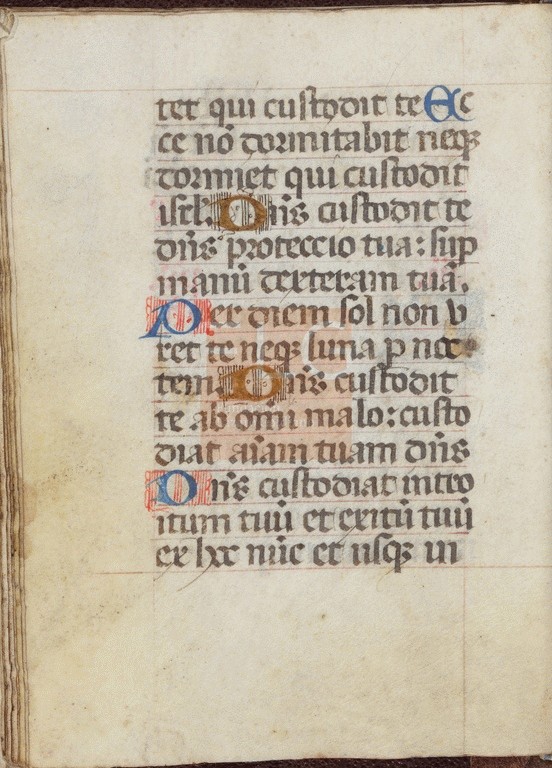 tet qui custodit te Ec
ce nō dormitabit neqꝫ
dormiet qui custodit
isrl. Dn̄s custodit te
dn̄s proteccio tua: suꝑ
manū dexteram tuā.
Per diem sol non v
ret te neqꝫ luna ꝑ noc
tem. Dn̄s custodit
te ab om̄i malo: custo
diat aīam tuam dn̄s
Dn̄s custodiat intro
itum tuū et exitū tuū
ex hoc nūc et usqꝫ in